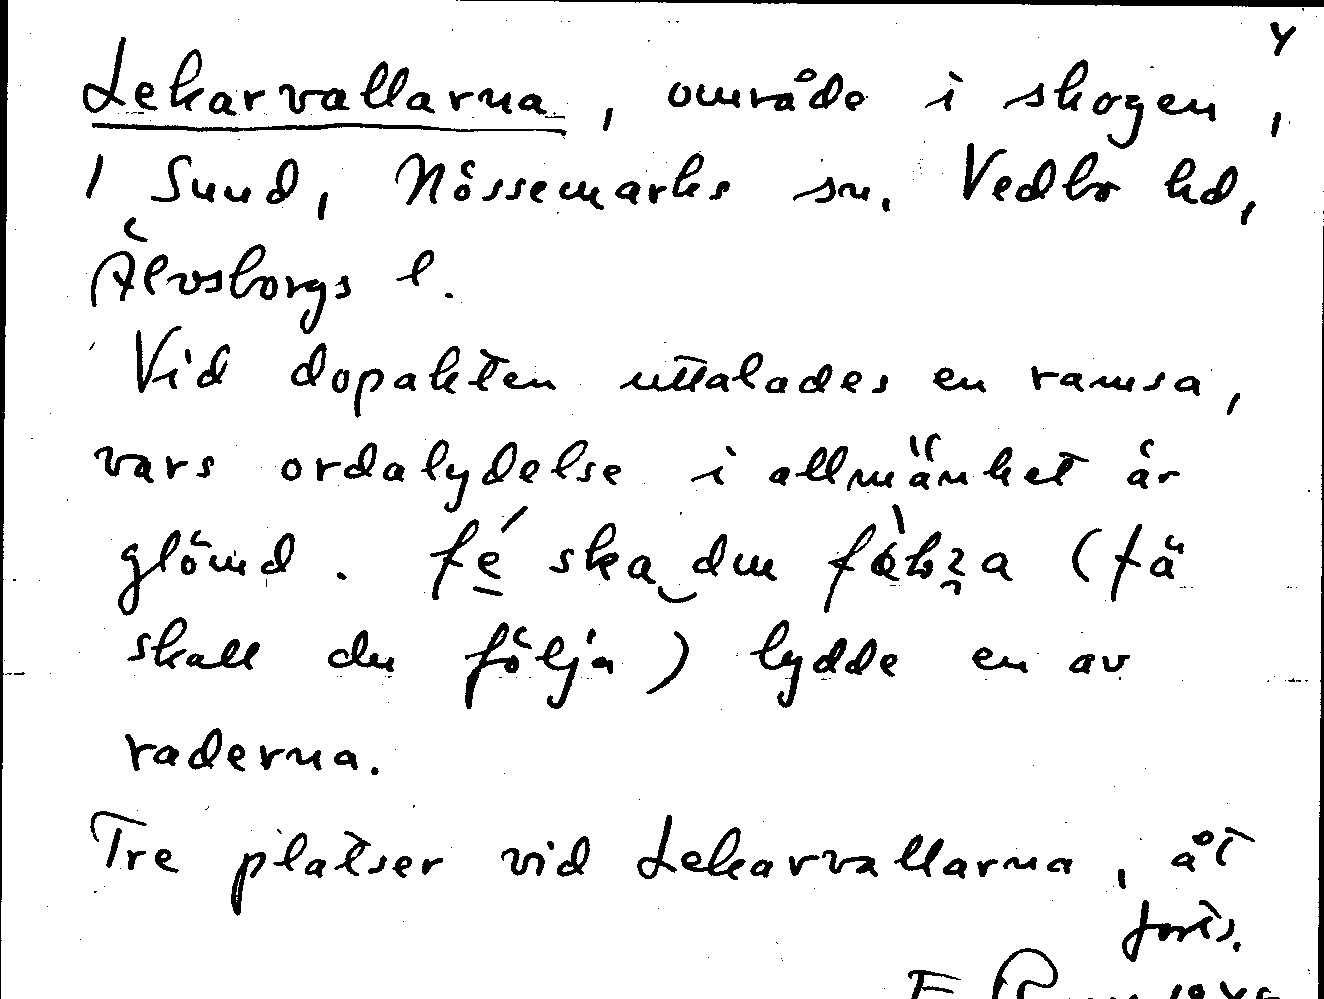 4
Lekarvallarna, område i skogen,
1 Sund, Nössemarks sn. Vedbo hd,
Älvsborgs l.
Vid dopakten uttalades en ramsa,
vars ordalydelse i allmänhet är
glömd. fé ska du (fä
skall du följa) lydde en av
raderna.
Tre platser vid Lekarvallarna, åt
forts.